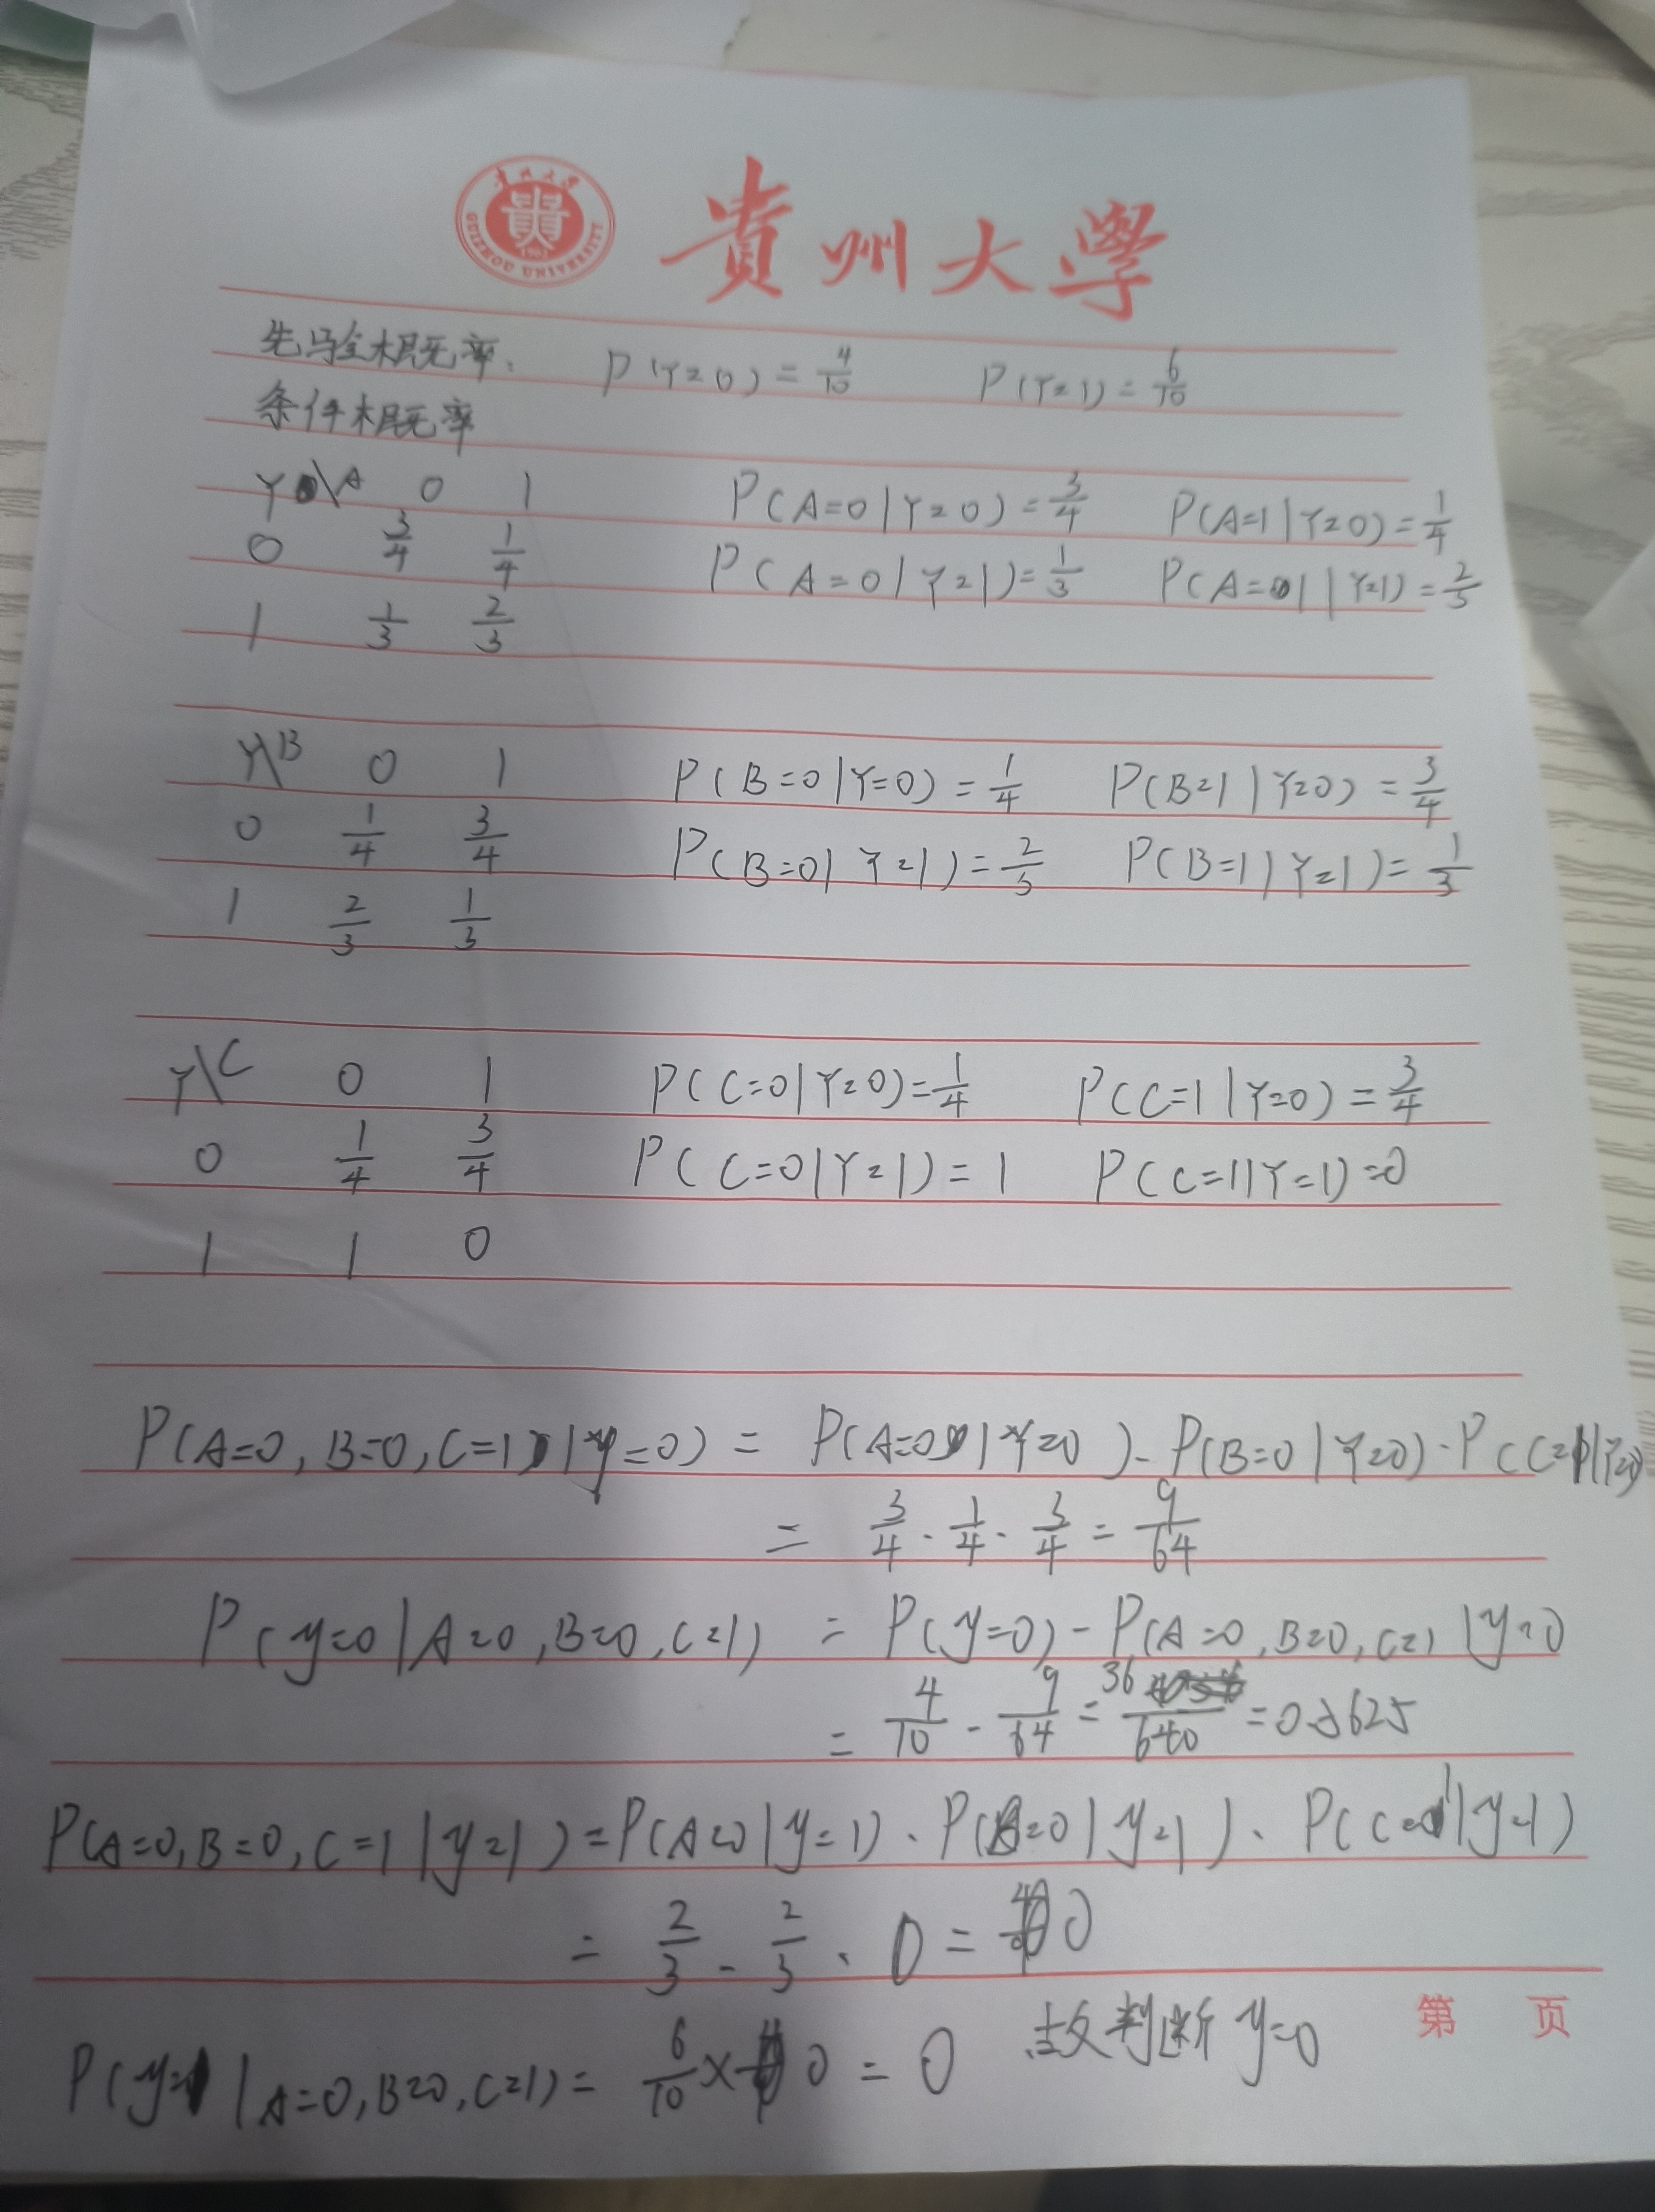 貴州大學
GUIZHOU UNIVERSITY
先验概率: P(Y=0) = 4/10 P(Y=1) = 6/10
条件概率
Y\A 0 1 P(A=0|Y=0) = 3/4 P(A=1|Y=0) = 1/4
0 3/4 1/4 P(A=0|Y=1) = 1/3 P(A=1|Y=1) = 2/3
1 1/3 2/3
Y\B 0 1 P(B=0|Y=0) = 1/4 P(B=1|Y=0) = 3/4
0 1/4 3/4 P(B=0|Y=1) = 2/3 P(B=1|Y=1) = 1/3
1 2/3 1/3
Y\C 0 1 P(C=0|Y=0) = 1/4 P(C=1|Y=0) = 3/4
0 1/4 3/4 P(C=0|Y=1) = 1 P(C=1|Y=1) = 0
1 1 0
P(A=0, B=0, C=1|y=0) = P(A=0|Y=0) · P(B=0|Y=0) · P(C=1|Y=0)
= 3/4 · 1/4 · 3/4 = 9/64
P(y=0|A=0, B=0, C=1) = P(y=0) · P(A=0, B=0, C=1|y=0
= 4/10 · 9/64 = 36/640 = 0.5625
P(A=0, B=0, C=1|y=1) = P(A=0|y=1) · P(B=0|y=1) · P(C=1|y=1)
= 2/3 · 2/3 · 0 = 0
P(y=1|A=0, B=0, C=1) = 6/10 × 0 = 0 故判断 y=0
第 页